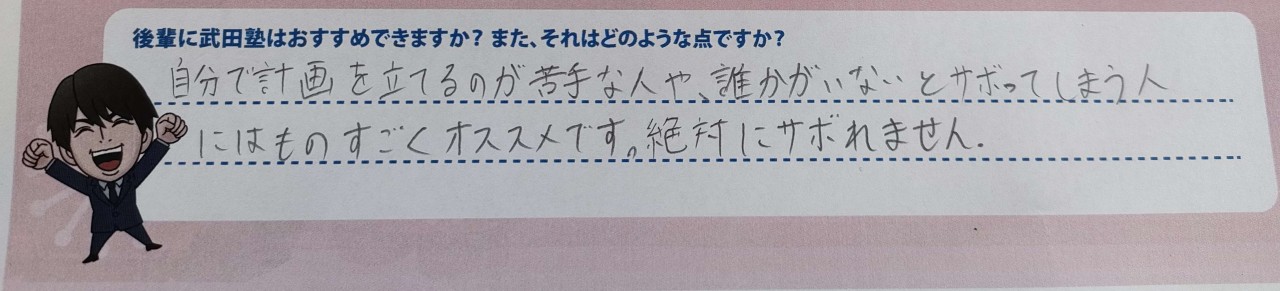 後輩に武田塾はおすすめできますか？また、それはどのような点ですか？
自分で計画を立てるのが苦手な人や、誰かがいないとサボってしまう人
にはものすごくオススメです。絶対にサボれません.